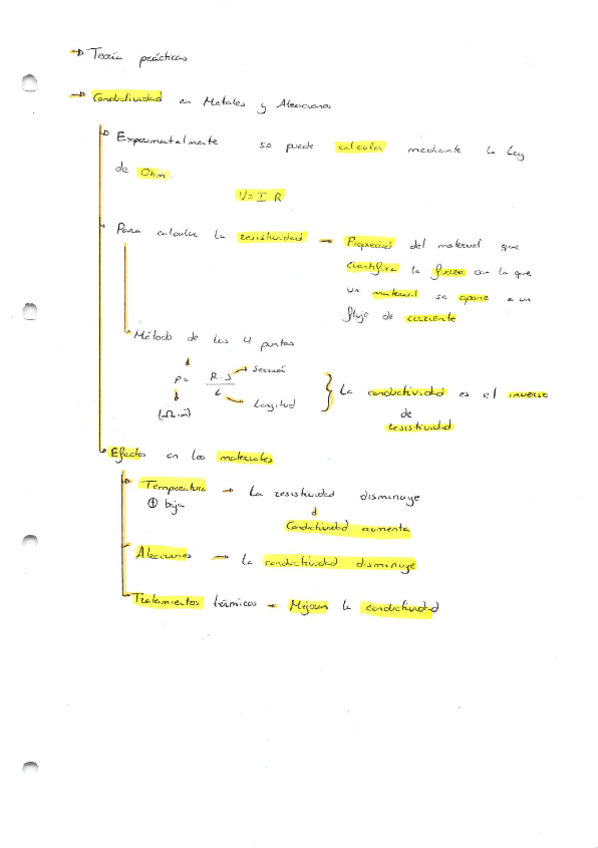 → Teoría prácticas
→ Conductividad en Metales y Aleaciones
Experimentalmente se puede calcular mediante la Ley
de Ohm.
V= I R
Para calcular la resistividad → Propiedad del material que
cuantifica la fuerza con la que
un material se opone a un
flujo de corriente
Método de las 4 puntas
ρ= R·S / L
→ Sección
→ Longitud
(Ω·m)
} La conductividad es el inverso
de
resistividad
Efectos en los materiales
Temperatura → La resistividad disminuye
⊕ baja
Conductividad aumenta
Aleaciones → La conductividad disminuye
Tratamientos térmicos → Mejoran la conductividad